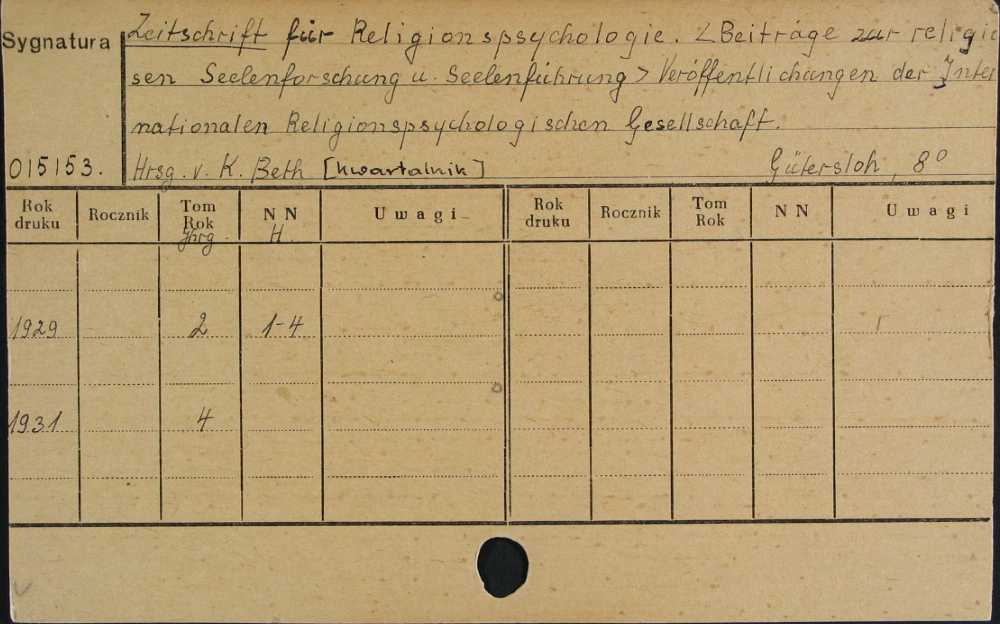 Sygnatura
Zeitschrift für Religionspsychologie. <Beiträge zur religiö
sen Seelenforschung u. Seelenführung> Veröffentlichungen der Inter
nationalen Religionspsychologischen Gesellschaft.
015153. Hrsg. v. K. Beth [kwartalnik] Gütersloh, 8°
Rok druku Rocznik Tom Rok Jhrg. NN H. Uwagi Rok druku Rocznik Tom Rok NN Uwagi
1929 2 1-4
1931 4